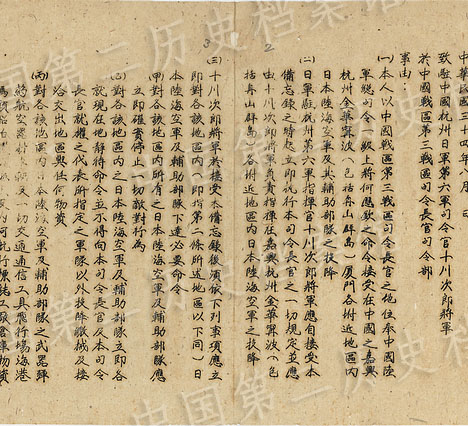 中華民國三十四年八月 日
致駐中國杭州日軍第六軍司令官十川次郎將軍
於中國戰區第三戰區司令長官司令部
事由：
(一)本人以中國戰區第三戰區司令長官之地位奉中國陸
軍總司令一級上將何應欽之命令接受在中國之嘉興
杭州金華寧波(包括舟山群島)廈門各附近地區內
日本陸海空軍及輔助部隊之投降
(二)日軍駐杭州第六軍指揮官十川次郎將軍應自接受本
備忘錄之時起立即執行本司令長官之一切規定並應
由十川次郎將軍負責指揮在嘉興杭州金華寧波(包
括舟山群島)各附近地區內日本陸海空軍之投降
2
3
(三)十川次郎將軍於接受本備忘錄後須依下列事項應立
即對各該地區內(即指第二條所述地區以下同)日
本陸海空軍及輔助部隊下達必要命令
(甲)對各該地區內之所有日本陸海空軍及輔助部隊應
立即確實停止一切敵對行為
(乙)對各該地區內之日本陸海空軍及輔助部隊立即各
就現在地靜待命令並不得向本司令長官及本司令
長官就權之代表所指定之軍隊以外投降繳械及接
洽交出地區與任何物資
(丙)對各該地區內日本陸海空軍及輔助部隊之武器彈
藥航空器材 船及一切交通通信工具飛行場海港
倉庫物資
中国第二历史档案馆